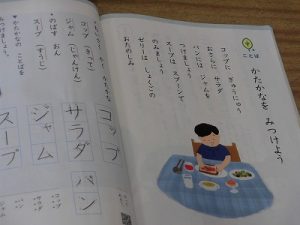 ことば
かたかなを みつけよう
コップに ぎゅうにゅう
おさらに サラダ
パンには ジャムを
つけましょう
スープは スプーンで
のみましょう
ゼリーは しょくごの
おたのしみ
コップ
サラダ
パン
ジャム
スープ
コップ(きって)
ジャム(じゃんけん)
のばす おん
スープ(すうじ)
かたかなの ことばを
みつけましょう。